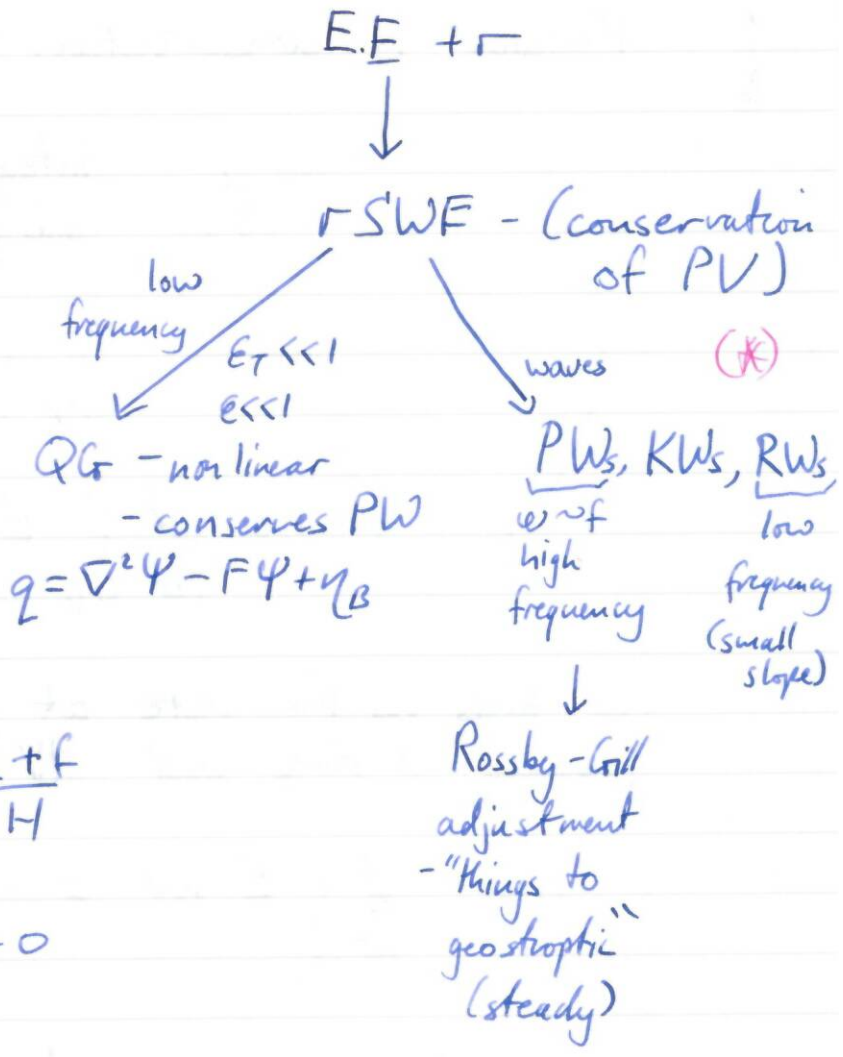 E.E + r
rSWE - (conservation
of PV)
low
frequency
ϵ_T <<1
ϵ<<1
waves
(*)
QG - non linear
- conserves PW
q = ∇²Ψ - FΨ + η_B
PWs, KWs, RWs
ω~f
high
frequency
low
frequency
(small
slope)
Rossby-Gill
adjustment
- "things to
geostroptic"
(steady)
+ f
H
0